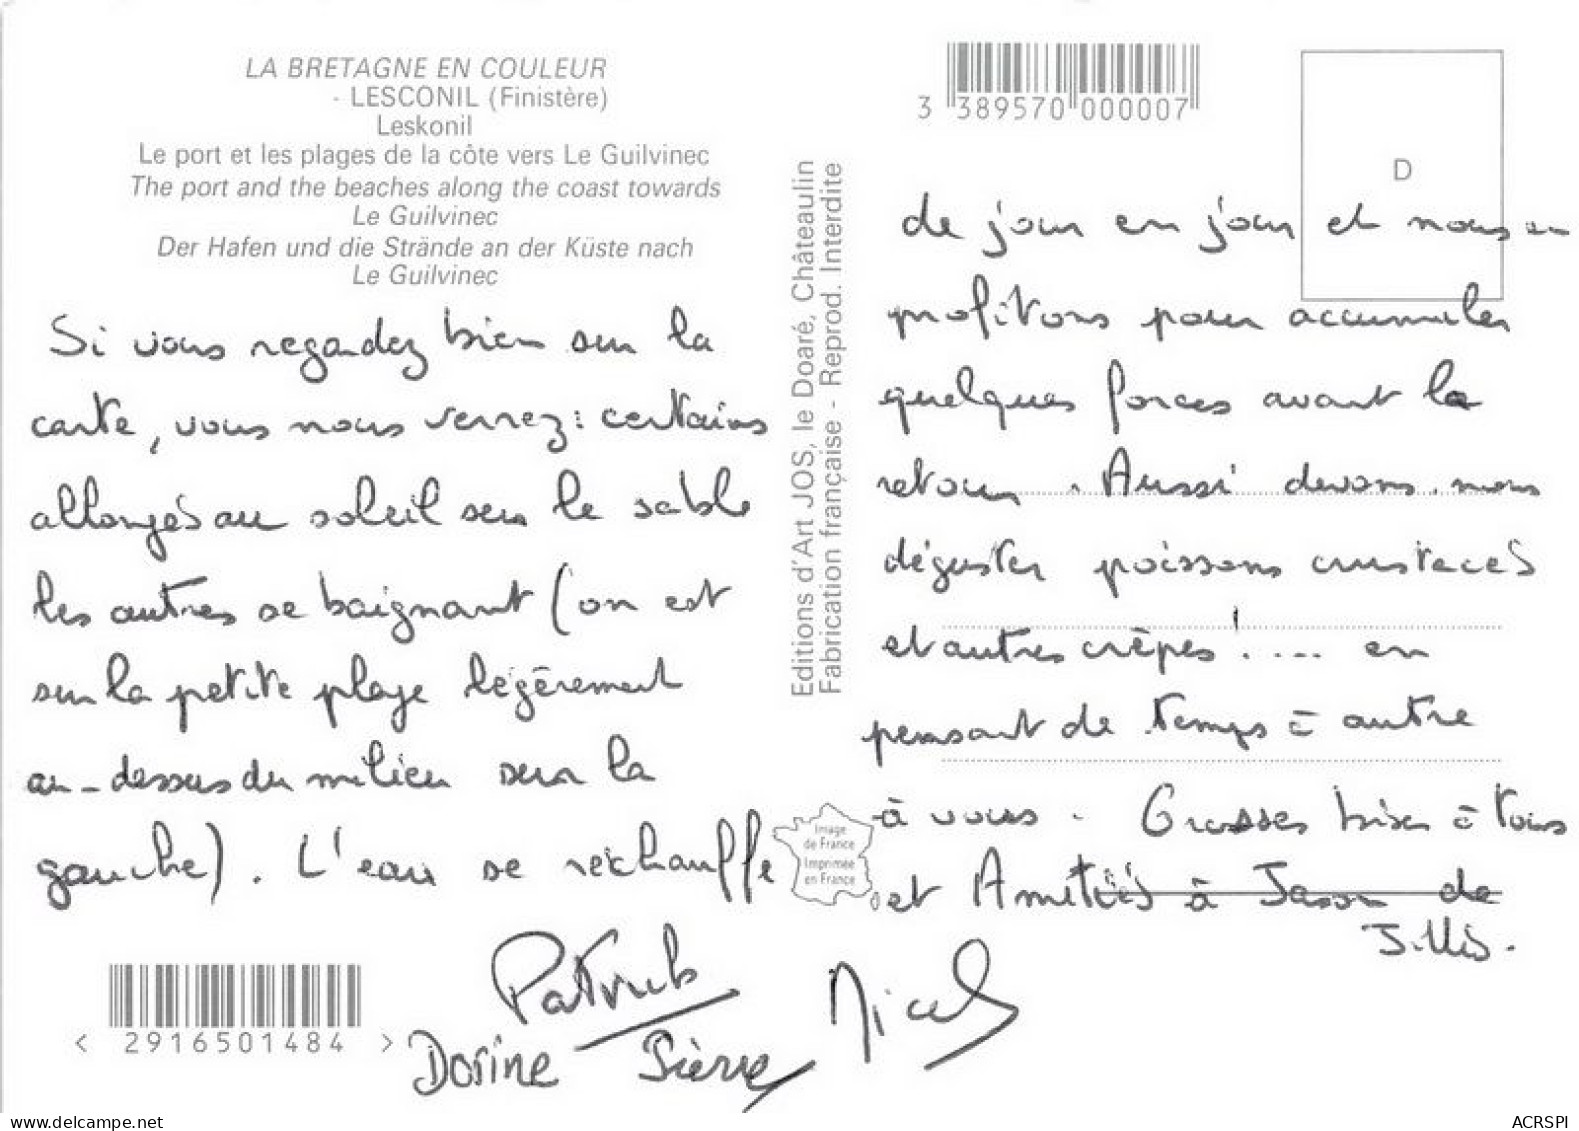 LA BRETAGNE EN COULEUR
- LESCONIL (Finistère)
Leskonil
Le port et les plages de la côte vers Le Guilvinec
The port and the beaches along the coast towards
Le Guilvinec
Der Hafen und die Strände an der Küste nach
Le Guilvinec
Si vous regardez bien sur la
carte, vous nous verrez : certains
allongés au soleil sur le sable
les autres se baignant (on est
sur la petite plage légèrement
au-dessus du milieu sur la
gauche). L'eau se réchauffe
3 389570 000007
D
de jour en jour et nous en
profitons pour accumuler
quelques forces avant le
retour. Aussi devons nous
déguster poissons crustacés
et autres crêpes !.... en
pensant de temps à autre
à vous. Grosses bises à tous
et Amitiés à Jason de
Editions d'Art JOS, le Doaré, Châteaulin
Fabrication française - Reprod. Interdite
Image
de France
Imprimée
en France
Patrick
Dorine Pierre
< 29165501484 >
ACRSPI